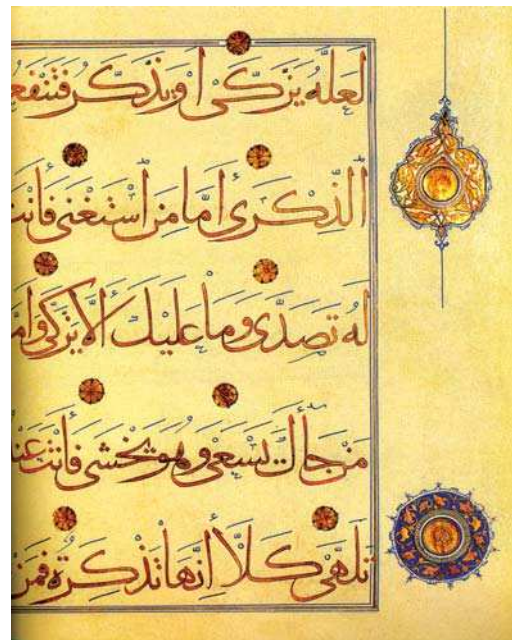 لَعَلَّهُ يَزَّكَّىٰ أَوْ يَذَّكَّرُ فَتَنْفَعَ
ٱلذِّكْرَىٰ أَمَّا مَنِ ٱسْتَغْنَىٰ فَأَنْتَ
لَهُ تَصَدَّىٰ وَمَا عَلَيْكَ أَلَّا يَزَّكَّىٰ وَأَمَّا
مَنْ جَاءَكَ يَسْعَىٰ وَهُوَ يَخْشَىٰ فَأَنْتَ عَنْ
تَلَهَّىٰ كَلَّا إِنَّهَا تَذْكِرَةٌ فَمَنْ